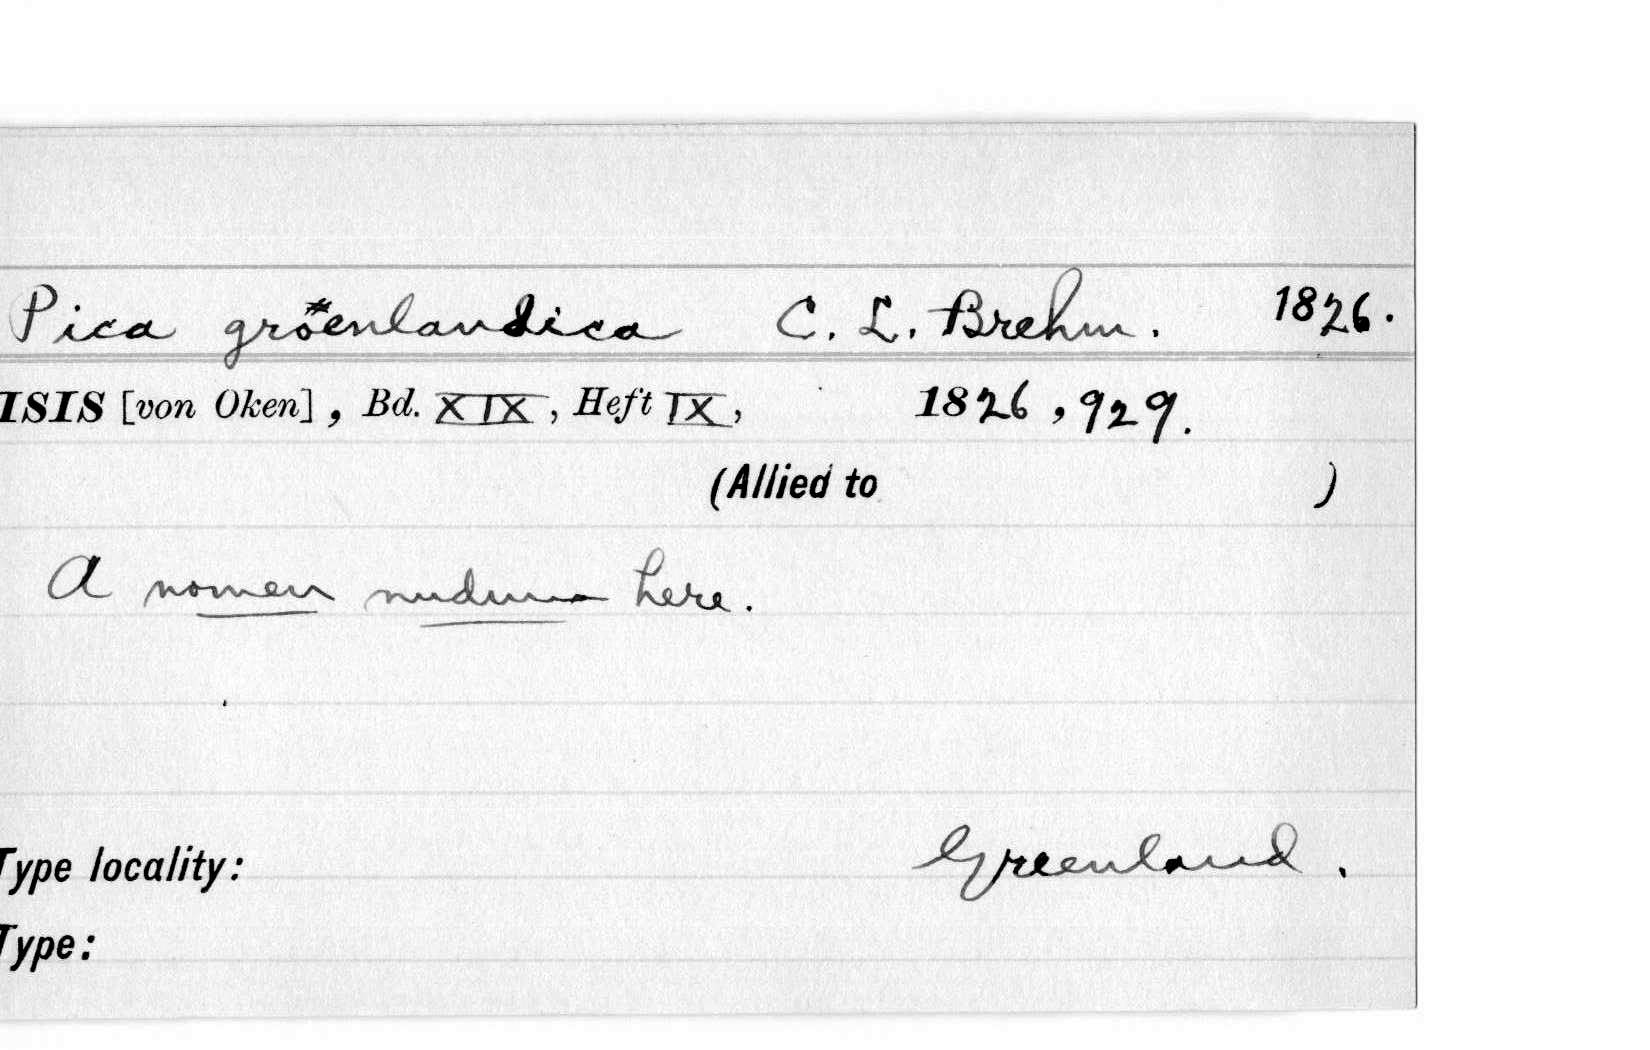 Pica gröenlandica C. L. Brehm. 1826.
ISIS [von Oken], Bd. XIX, Heft IX, 1826, 929.
(Allied to )
A nomen nudum here.
Type locality: Greenland.
Type: